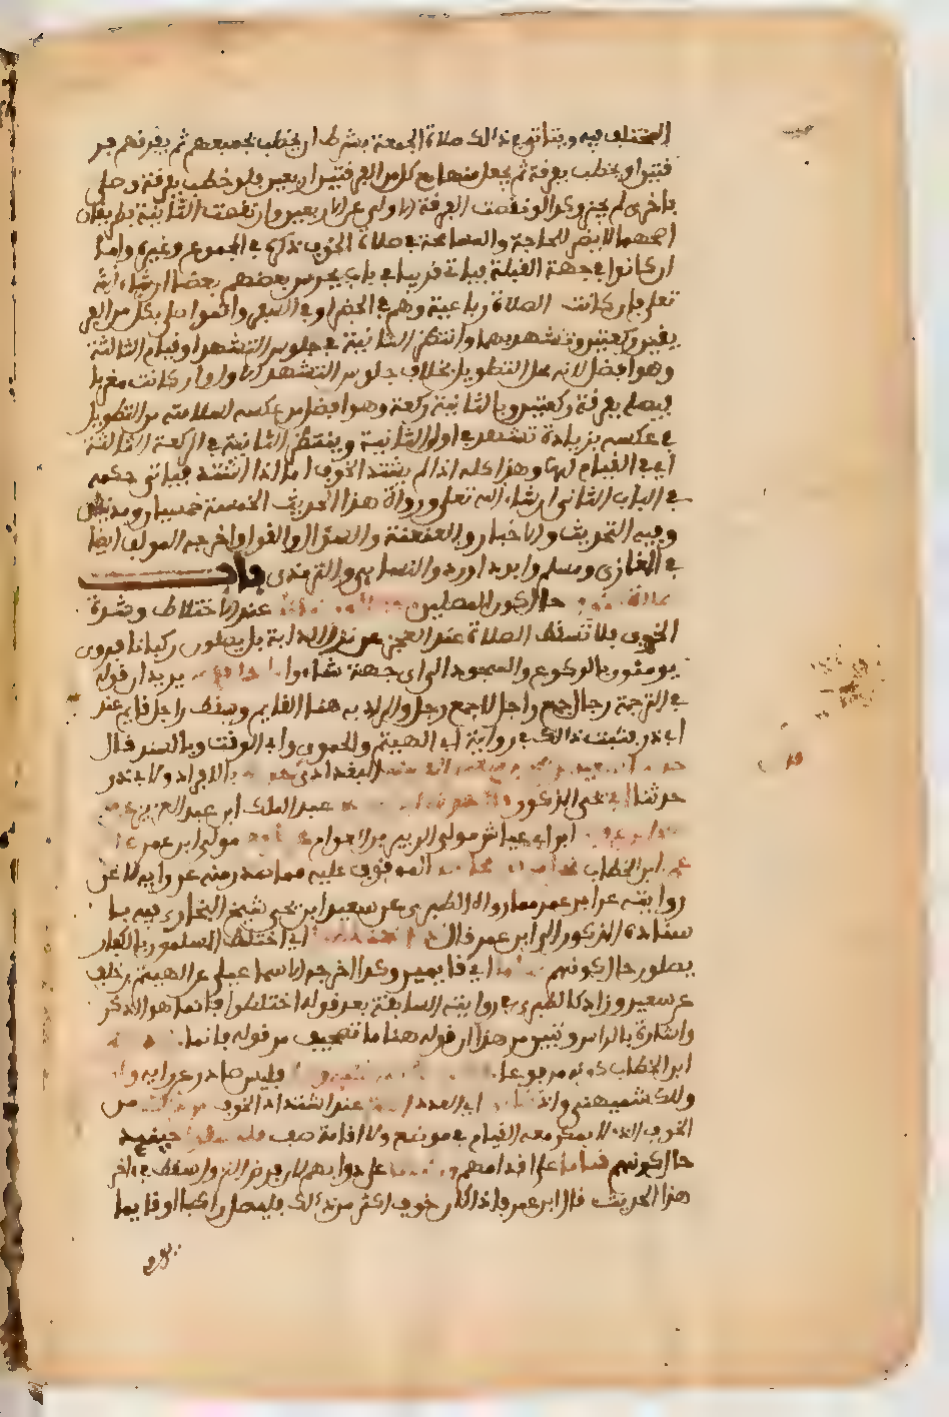 المختلف فيه ويتأتى في ذلك صلاة الجمعة بشرط ان يخطب بجميعهم ثم يفرقهم فر
قتين او يخطب بفرقة ثم يجعل منها مع كل من الفرقتين اربعين فلو خطب بفرقة وصلى
باخرى لم يجز وكذا لو نقصت الفرقة الاولى عن الاربعين وان نقصت الثانية فطريقان
اصحهما لا يضر للحاجة والمسامحة في صلاة الخوف ذكره في المجموع وغيره واما
ان كانوا في جهة القبلة فياتي قريبا في باب يحرس بعضهم بعضا ان شاء الله
تعلى فان كانت الصلاة رباعية وهم في الحضر او في السفر واتموا صلى بكل من الفر
يقين ركعتين وتشهد بهما وانتظر الثانية في جلوس التشهد او قيام الثالثة
وهو افضل لانه محل التطويل بخلاف جلوس التشهد الاول وان كانت مغربا
فيصلي بفرقة ركعتين وبالثانية ركعة وهو افضل من عكسه لسلامته من التطويل
في عكسه بزيادة تشهد في اول الثانية وينتظر الثانية في الركعة الثالثة
اي في القيام لها وهذا كله اذا لم يشتد الخوف اما اذا اشتد فياتي حكمه
في الباب الثاني ان شاء الله تعلى ورواة هذا الحديث الخمسة حمصيان ومدنيان
وفيه التحديث والاخبار والعنعنة والسؤال والقول واخرجه المولف ايضا
في المغازي ومسلم وابو داورد والنساءي والترمذي باب
صلاة الخوف حال كون المصلين عند الاختلاط وشدة
الخوف فلا تسقط الصلاة عند العجز عن نزول الدابة بل يصلون ركبانا فرادى
يومئون بالركوع والسجود الى اي جهة شاءوا يريد ان قوله
في الترجمة رجالا جمع راجل لا جمع رجل والمراد به هنا القايم وسقط راجل قايم عند
ابي ذر وثبت ذلك في رواية ابي الهيثم والحموي وابي الوقت وبالسند قال
البغدادي بالافراد ولابي ذر
حدثنا ابي يحيى المذكور عبد الملك ابن عبد العزيز
ابن ابي عياش مولى الزبير بن العوام مولى ابن عمر
ابن الخطاب الموقوف عليه مما صدر منه عن رايه لا عن
روايته عن ابن عمر مما رواه الطبري عن سعيد ابن يحيى شيخ البخاري فيه با
سناده المذكور الى ابن عمر قال اي اختلط المسلمون بالكفار
يصلون حال كونهم اي قايمين وكذا اخرجه الاسماعيلي عن الهيثم بن خلف
عن سعيد وزاد كالطبري في روايته السابقة بعد قوله اختلطوا فانما هو الذكر
واشارة بالراس وتبين من هذا ان قوله هنا قياما تصحيف من قوله فانما
ابن الخطاب مرفوعا فليس صادر عن رايه
وللكشميهني واذا اي العدد عند اشتداد الخوف من
الخوف الذي لا يمكن معه القيام في موضع ولا اقامة صف حينئذ
حال كونهم قياما على اقدامهم على دوابهم لان فرض النزول سقط في اخر
هذا الحديث قال ابن عمر فاذا كان خوف اكثر من ذلك فليصل راكبا او قايما